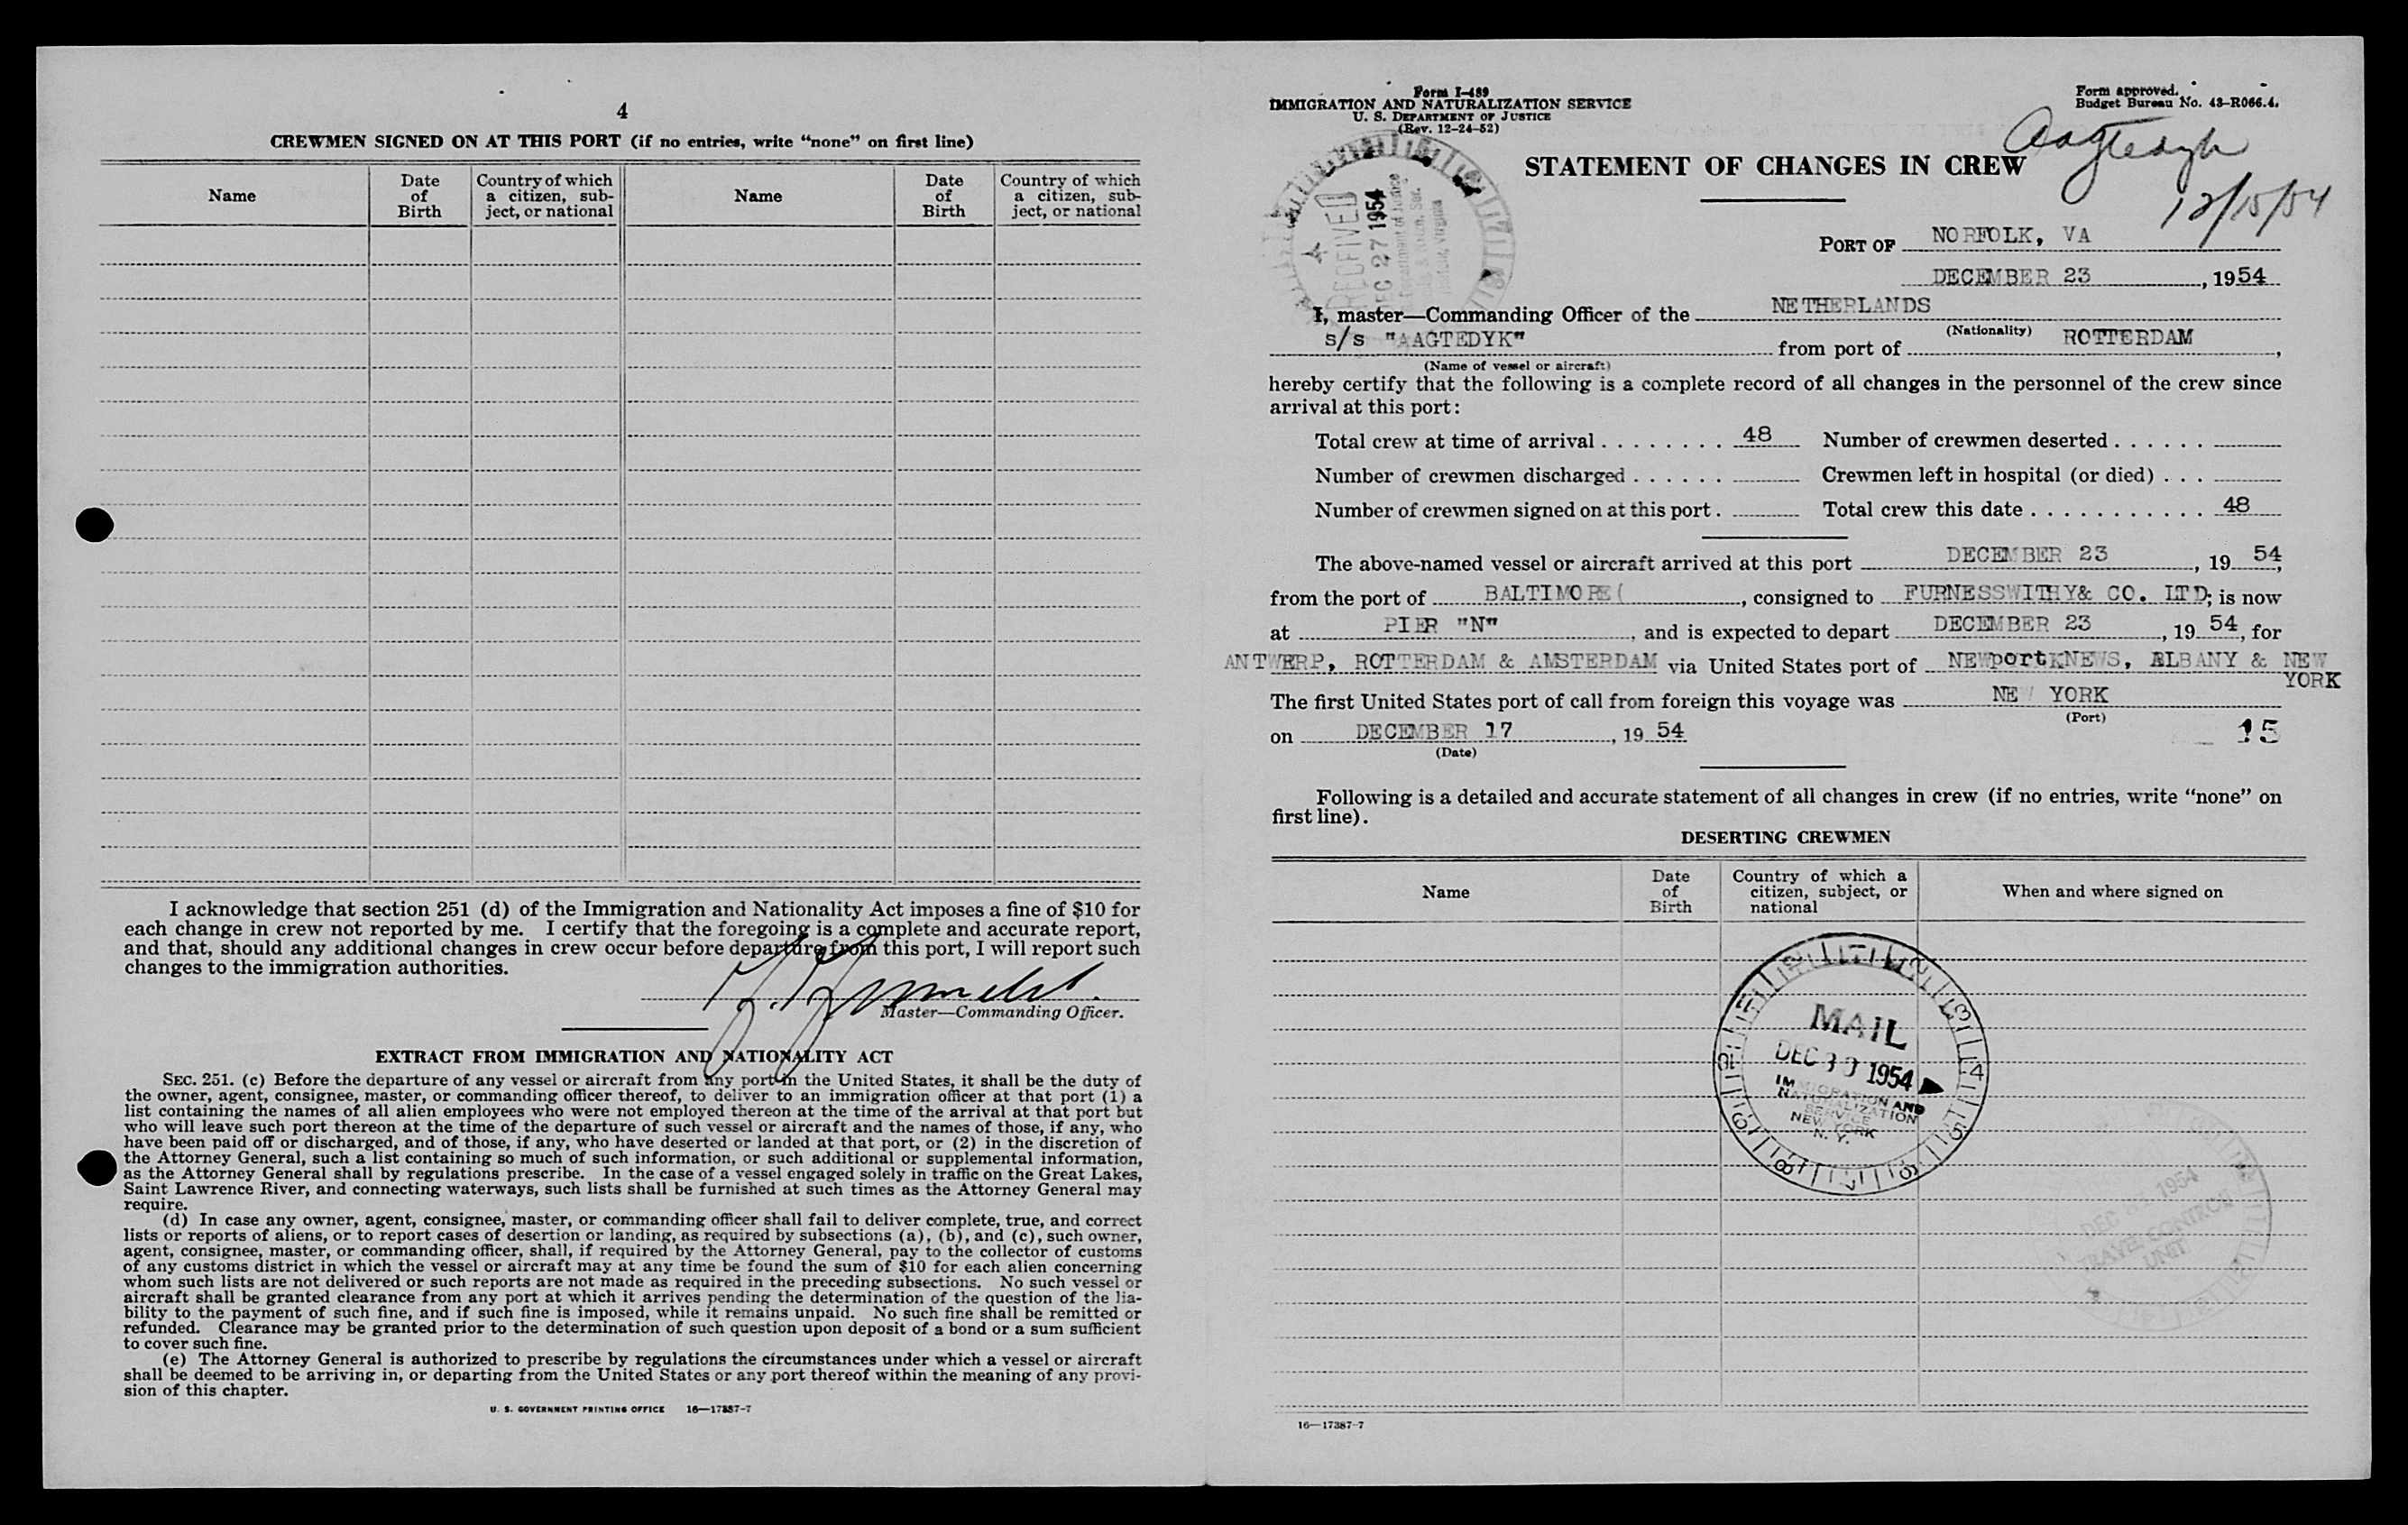 4
CREWMEN SIGNED ON AT THIS PORT (if no entries, write “none” on first line)
Name
Date of Birth
Country of which a citizen, subject, or national
Name
Date of Birth
Country of which a citizen, subject, or national
I acknowledge that section 251 (d) of the Immigration and Nationality Act imposes a fine of $10 for
each change in crew not reported by me. I certify that the foregoing is a complete and accurate report,
and that, should any additional changes in crew occur before departure from this port, I will report such
changes to the immigration authorities.
Master—Commanding Officer.
EXTRACT FROM IMMIGRATION AND NATIONALITY ACT
SEC. 251. (c) Before the departure of any vessel or aircraft from any port in the United States, it shall be the duty of
the owner, agent, consignee, master, or commanding officer thereof, to deliver to an immigration officer at that port (1) a
list containing the names of all alien employees who were not employed thereon at the time of the arrival at that port but
who will leave such port thereon at the time of the departure of such vessel or aircraft and the names of those, if any, who
have been paid off or discharged, and of those, if any, who have deserted or landed at that port, or (2) in the discretion of
the Attorney General, such a list containing so much of such information, or such additional or supplemental information,
as the Attorney General shall by regulations prescribe. In the case of a vessel engaged solely in traffic on the Great Lakes,
Saint Lawrence River, and connecting waterways, such lists shall be furnished at such times as the Attorney General may
require.
(d) In case any owner, agent, consignee, master, or commanding officer shall fail to deliver complete, true, and correct
lists or reports of aliens, or to report cases of desertion or landing, as required by subsections (a), (b), and (c), such owner,
agent, consignee, master, or commanding officer, shall, if required by the Attorney General, pay to the collector of customs
of any customs district in which the vessel or aircraft may at any time be found the sum of $10 for each alien concerning
whom such lists are not delivered or such reports are not made as required in the preceding subsections. No such vessel or
aircraft shall be granted clearance from any port at which it arrives pending the determination of the question of the lia-
bility to the payment of such fine, and if such fine is imposed, while it remains unpaid. No such fine shall be remitted or
refunded. Clearance may be granted prior to the determination of such question upon deposit of a bond or a sum sufficient
to cover such fine.
(e) The Attorney General is authorized to prescribe by regulations the circumstances under which a vessel or aircraft
shall be deemed to be arriving in, or departing from the United States or any port thereof within the meaning of any provi-
sion of this chapter.
U. S. GOVERNMENT PRINTING OFFICE 16—17387-7
Form I-489
IMMIGRATION AND NATURALIZATION SERVICE
U. S. DEPARTMENT OF JUSTICE
(Rev. 12-24-52)
Form approved.
Budget Bureau No. 43-R066.4.
Aagtedyk
12/15/54
STATEMENT OF CHANGES IN CREW
RECEIVED
DEC 27 1954
Department of Justice
Norfolk, Virginia
PORT OF NORFOLK, VA
DECEMBER 23, 1954
I, master—Commanding Officer of the NETHERLANDS
(Nationality)
s/s "AAGTEDYK" from port of ROTTERDAM,
(Name of vessel or aircraft)
hereby certify that the following is a complete record of all changes in the personnel of the crew since
arrival at this port:
Total crew at time of arrival . . . . . . . . 48 Number of crewmen deserted . . . . . .
Number of crewmen discharged . . . . . . Crewmen left in hospital (or died) . . .
Number of crewmen signed on at this port . Total crew this date . . . . . . . . . . . 48
The above-named vessel or aircraft arrived at this port DECEMBER 23, 19 54,
from the port of BALTIMORE(, consigned to FURNESSWITHY& CO. LTD; is now
at PIER "N", and is expected to depart DECEMBER 23, 19 54, for
ANTWERP, ROTTERDAM & AMSTERDAM via United States port of NEWportKNEWS, ALBANY & NEW
YORK
The first United States port of call from foreign this voyage was NEW YORK
(Port)
on DECEMBER 17, 19 54
(Date)
15
Following is a detailed and accurate statement of all changes in crew (if no entries, write “none” on
first line).
DESERTING CREWMEN
Name
Date of Birth
Country of which a citizen, subject, or national
When and where signed on
MAIL
DEC 30 1954
IMMIGRATION AND
NATURALIZATION
SERVICE
NEW YORK
N. Y.
DEC 1954
TRAVEL CONTROL
UNIT
16—17387-7